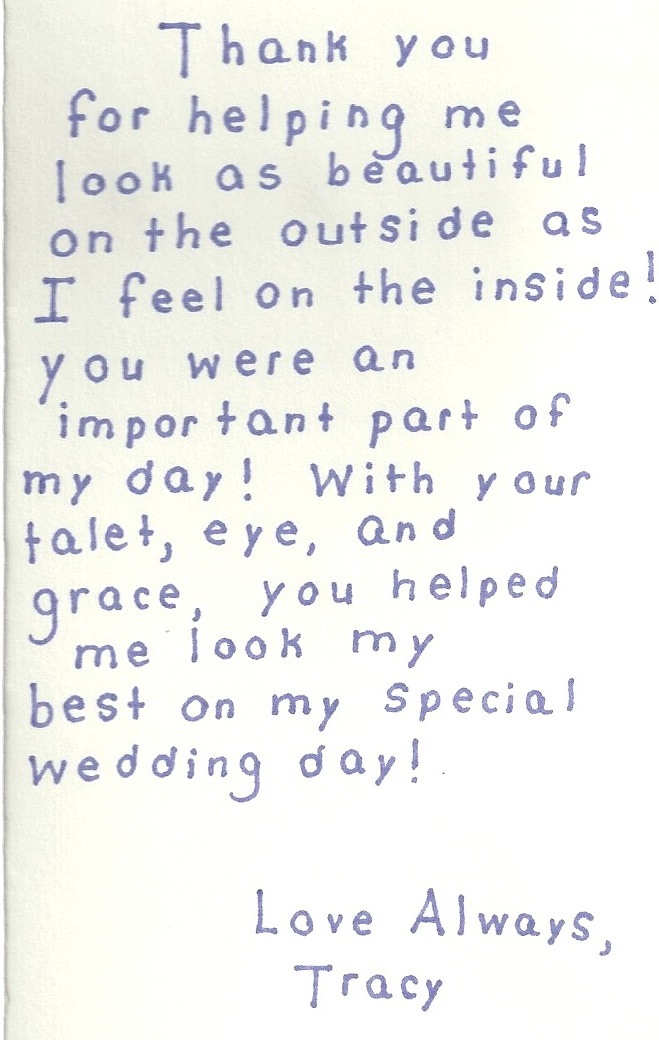 Thank you
for helping me
look as beautiful
on the outside as
I feel on the inside!
you were an
important part of
my day! With your
talet, eye, and
grace, you helped
me look my
best on my special
wedding day!
Love Always,
Tracy